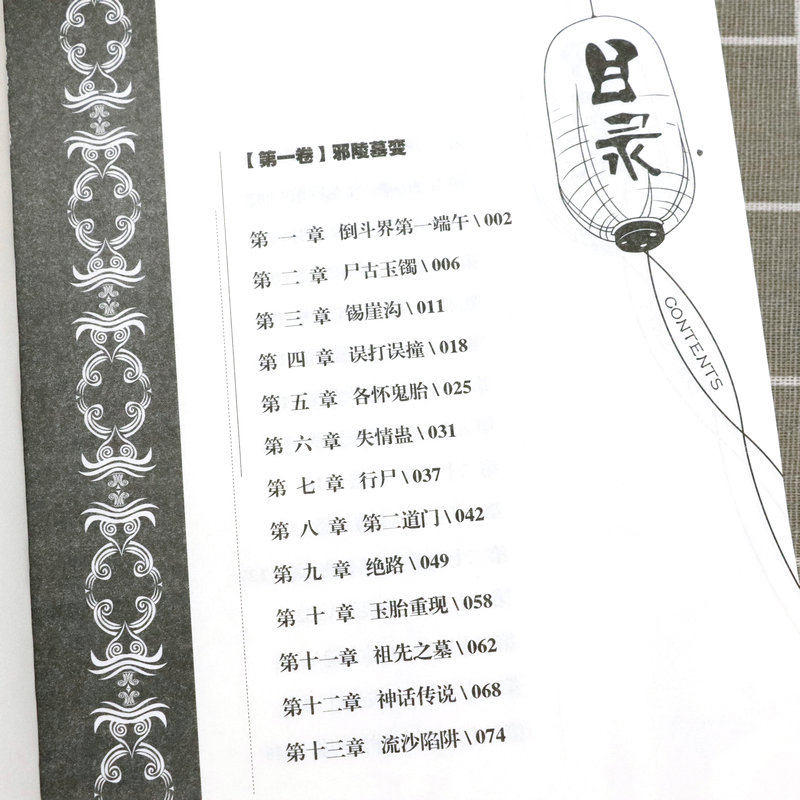 目录
CONTENTS
【第一卷】邪陵墓变
第一章 倒斗界第一端午\002
第二章 尸古玉镯\006
第三章 锡崖沟\011
第四章 误打误撞\018
第五章 各怀鬼胎\025
第六章 失情蛊\031
第七章 行尸\037
第八章 第二道门\042
第九章 绝路\049
第十章 玉胎重现\058
第十一章 祖先之墓\062
第十二章 神话传说\068
第十三章 流沙陷阱\074